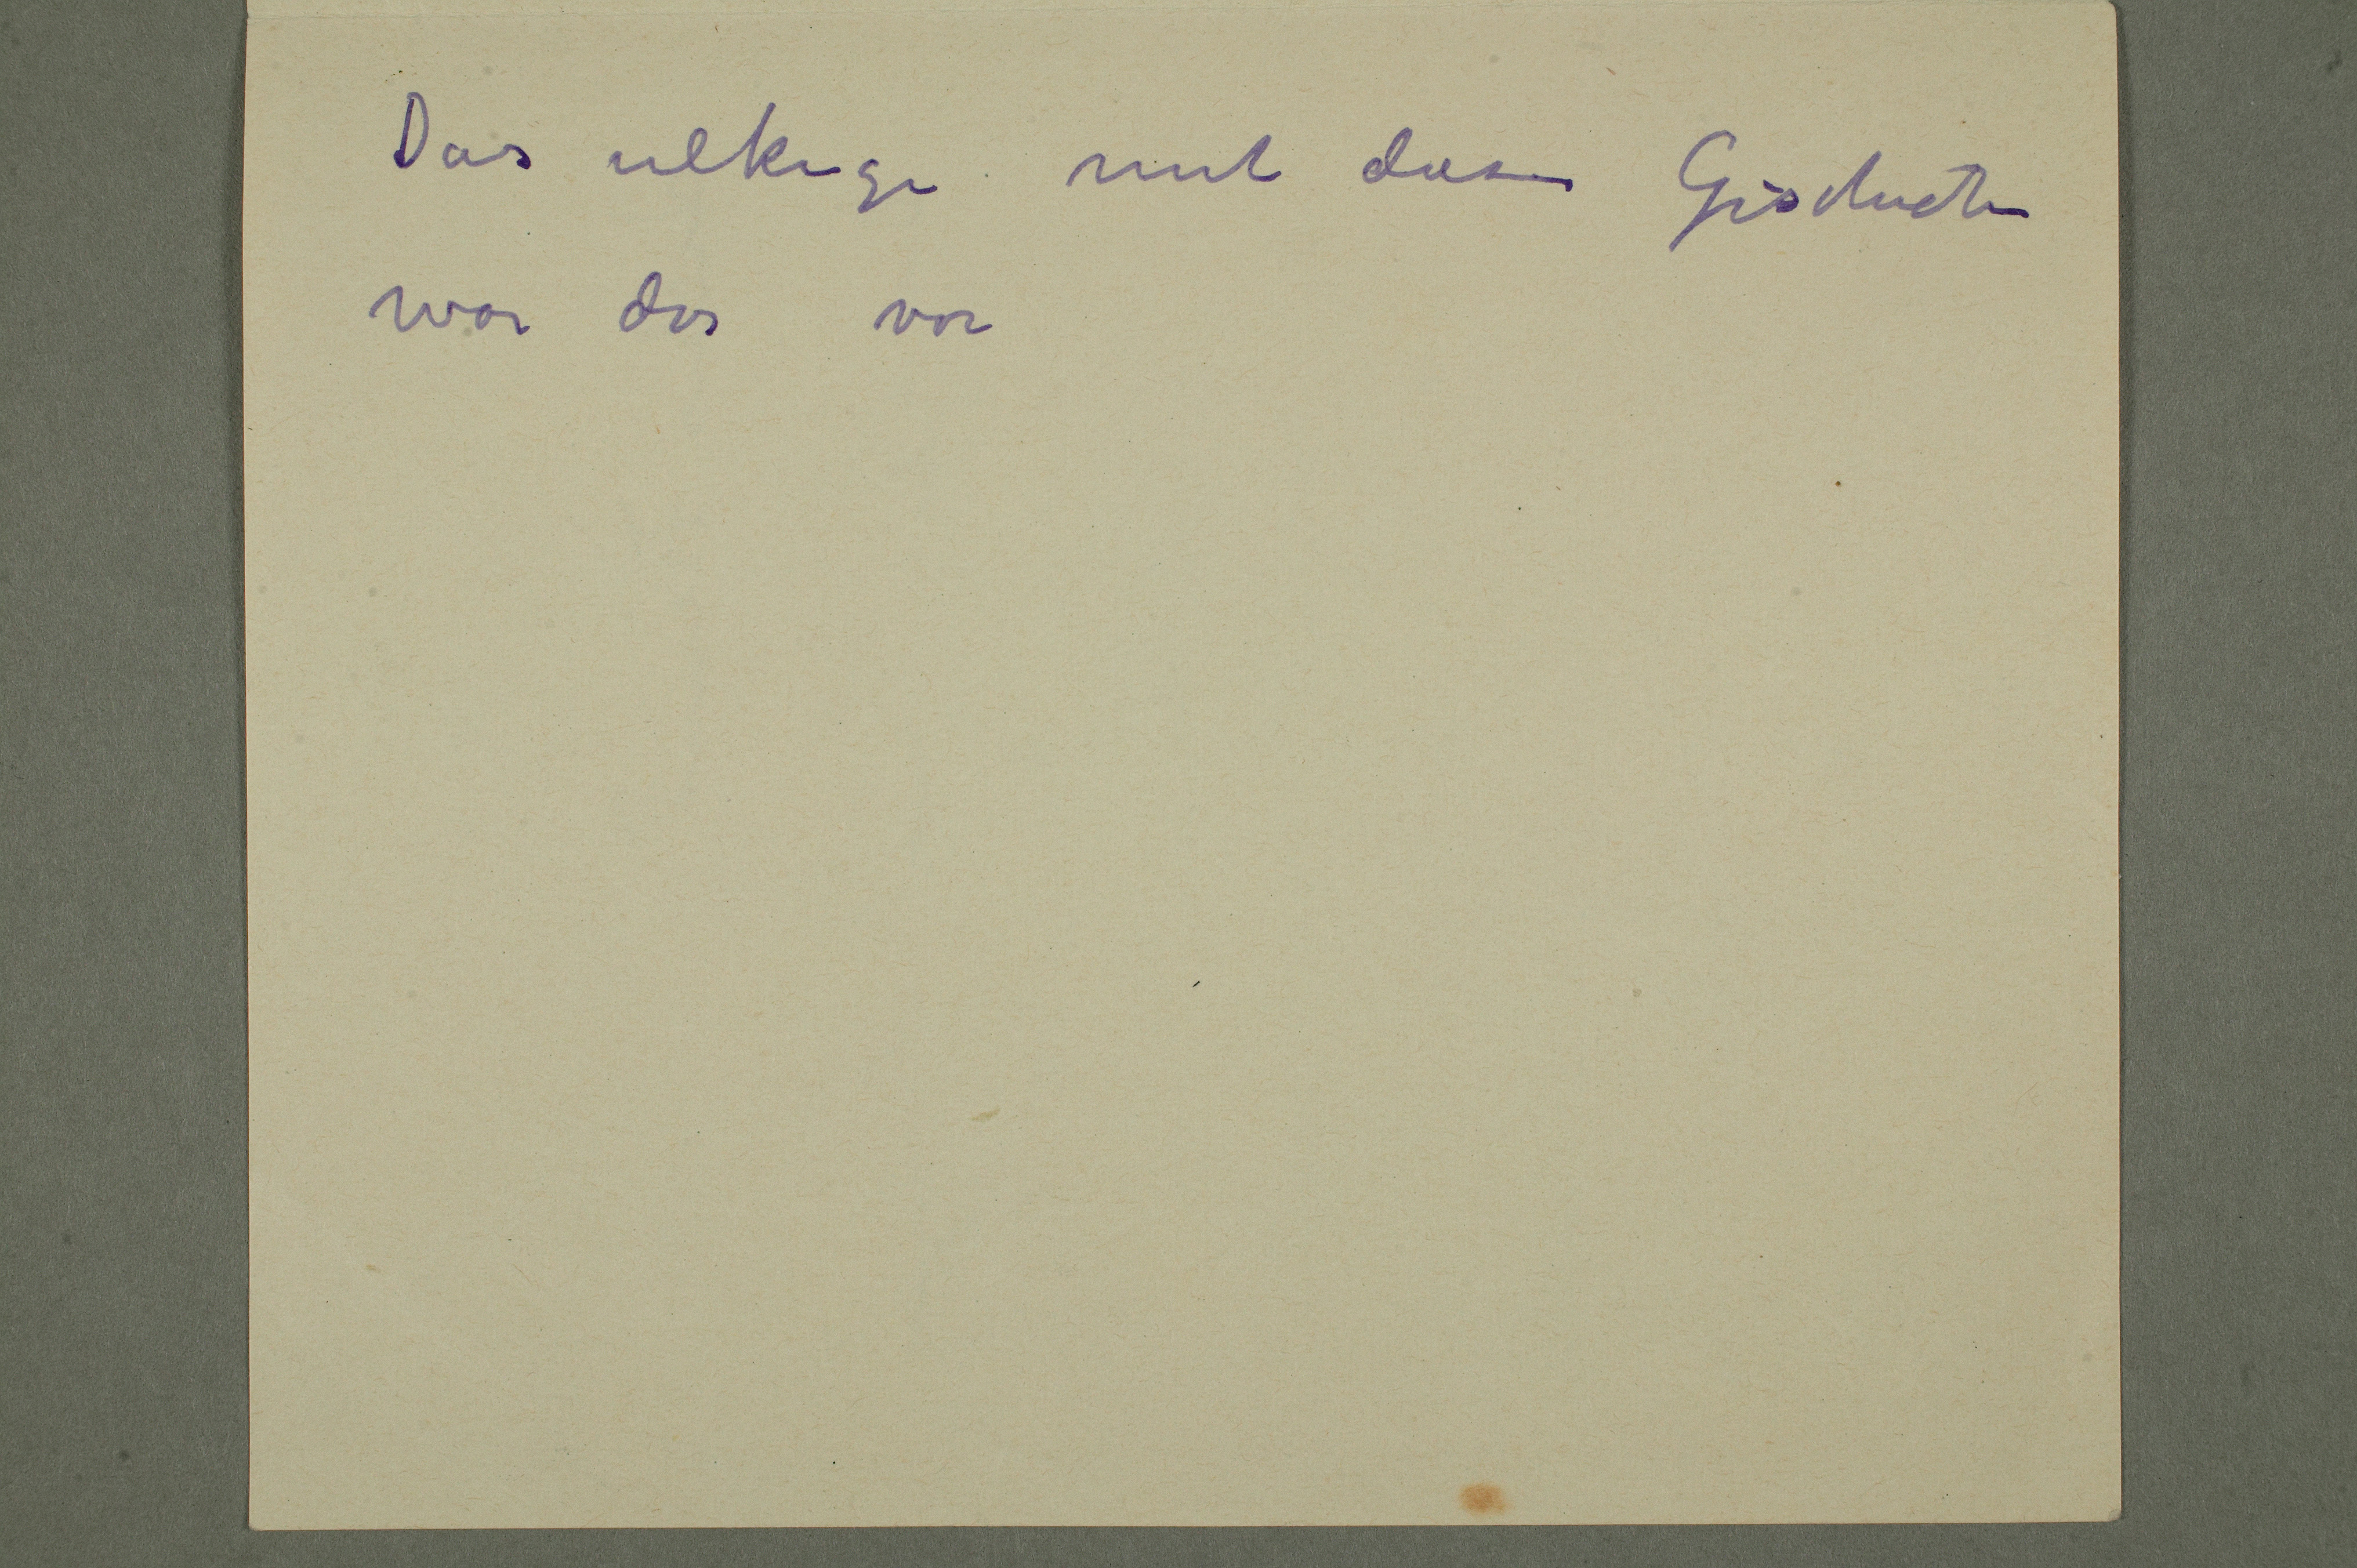 Das ulkige mit diesen Geschichten
war das vor